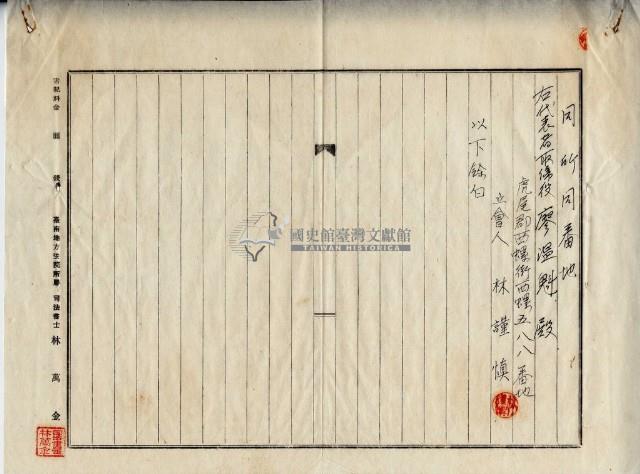 同所同番地
右代表者取締役 廖温魁 殿
虎尾郡西螺街西螺五八八番地
立會人 林謹慎
以下餘白
國史館臺灣文獻館
TAIWAN HISTORICA
書記料金 圓 錢
臺南地方法院所屬 司法書士 林萬金